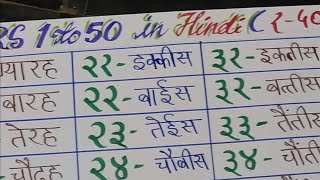 RS 1 to 50 in Hindi ( १-40
यारह २१- इक्कीस ३१- इकतीस
बारह २२- बाईस ३२- बत्तीस
तेरह २३- तेईस ३३- तैंतीस
चौदह २४- चौबीस ३४- चौंती